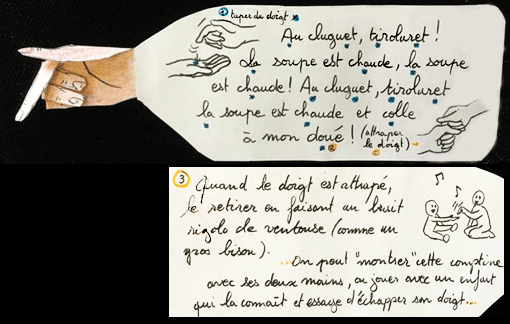 ① taper du doigt *
Au cluguet, tiroluret !
La soupe est chaude, la soupe
est chaude ! Au cluguet, tiroluret
la soupe est chaude et colle
à mon doué ! (attraper
le doigt)
② ②
③ Quand le doigt est attrapé,
le retirer en faisant un bruit
rigolo de ventouse (comme un
gros bisou).
...On peut "montrer" cette comptine
avec ses deux mains, ou jouer avec un enfant
qui la connaît et essaye d'échapper son doigt...